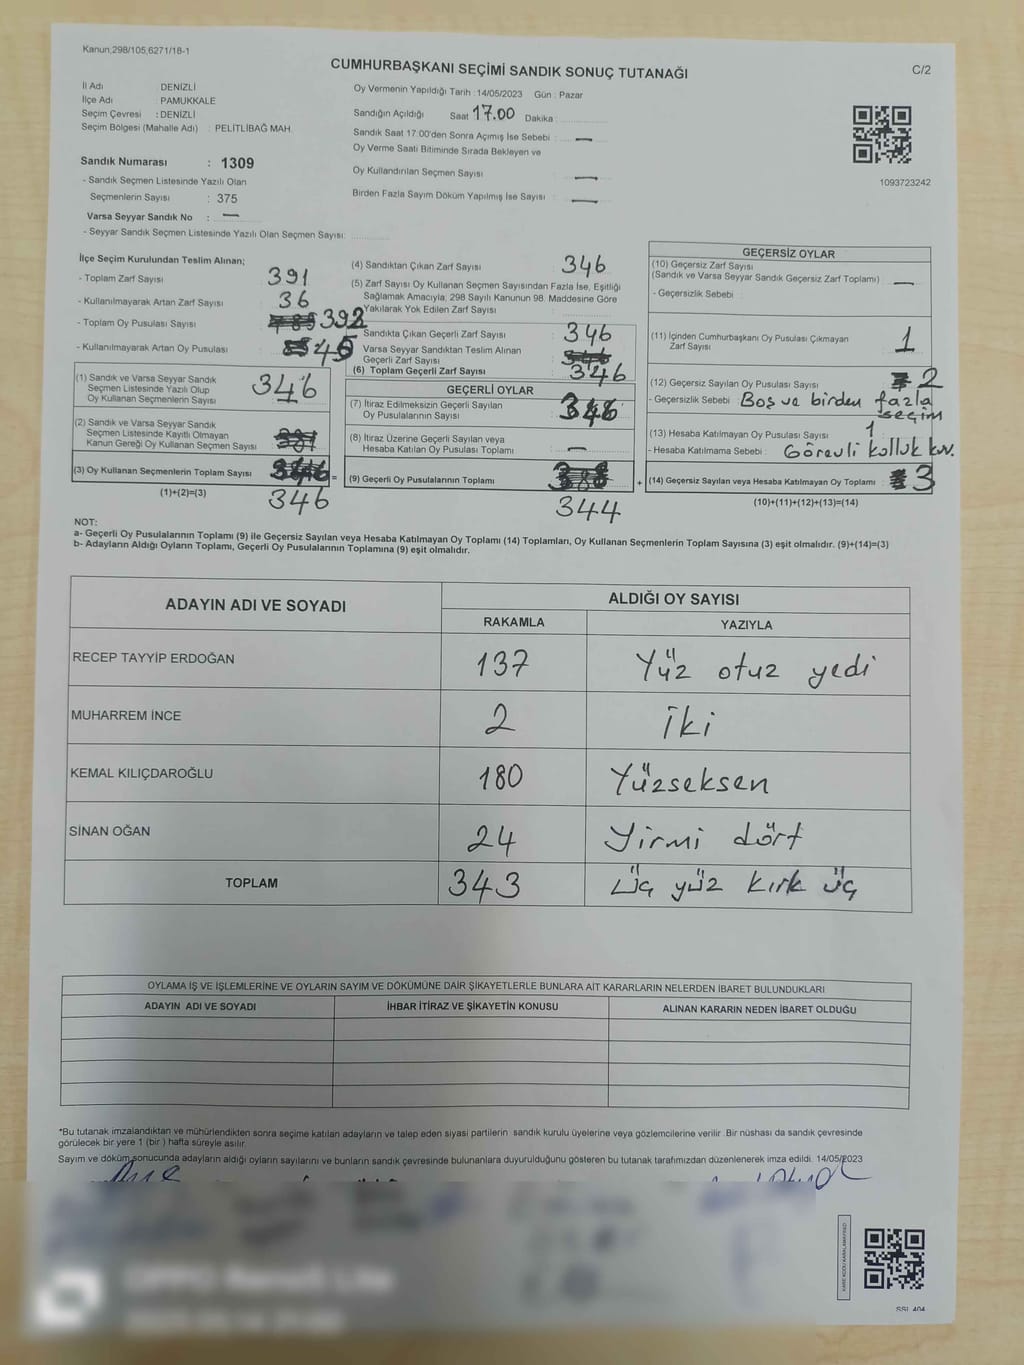 Kanun,298/105,6271/18-1
CUMHURBAŞKANI SEÇİMİ SANDIK SONUÇ TUTANAĞI
C/2
İl Adı DENİZLİ
İlçe Adı : PAMUKKALE
Seçim Çevresi : DENİZLİ
Seçim Bölgesi (Mahalle Adı) : PELİTLİBAĞ MAH.
Sandık Numarası : 1309
- Sandık Seçmen Listesinde Yazılı Olan
Seçmenlerin Sayısı : 375
Varsa Seyyar Sandık No : —
- Seyyar Sandık Seçmen Listesinde Yazılı Olan Seçmen Sayısı:
Oy Vermenin Yapıldığı Tarih : 14/05/2023 Gün : Pazar
Sandığın Açıldığı Saat 17.00 Dakika :
Sandık Saat 17:00'den Sonra Açımış İse Sebebi : —
Oy Verme Saati Bitiminde Sırada Bekleyen ve
Oy Kullandırılan Seçmen Sayısı : —
Birden Fazla Sayım Döküm Yapılmış İse Sayısı : —
1093723242
İlçe Seçim Kurulundan Teslim Alınan;
- Toplam Zarf Sayısı : 391
- Kullanılmayarak Artan Zarf Sayısı : 36
- Toplam Oy Pusulası Sayısı : 392
- Kullanılmayarak Artan Oy Pusulası : 45
(1) Sandık ve Varsa Seyyar Sandık
Seçmen Listesinde Yazılı Olup
Oy Kullanan Seçmenlerin Sayısı : 346
(2) Sandık ve Varsa Seyyar Sandık
Seçmen Listesinde Kayıtlı Olmayan
Kanun Gereği Oy Kullanan Seçmen Sayısı
(3) Oy Kullanan Seçmenlerin Toplam Sayısı
(1)+(2)=(3) 346
(4) Sandıktan Çıkan Zarf Sayısı : 346
(5) Zarf Sayısı Oy Kullanan Seçmen Sayısından Fazla İse, Eşitliği
Sağlamak Amacıyla; 298 Sayılı Kanunun 98. Maddesine Göre
Yakılarak Yok Edilen Zarf Sayısı :
Sandıkta Çıkan Geçerli Zarf Sayısı : 346
Varsa Seyyar Sandıktan Teslim Alınan
Geçerli Zarf Sayısı :
(6) Toplam Geçerli Zarf Sayısı : 346
GEÇERLİ OYLAR
(7) İtiraz Edilmeksizin Geçerli Sayılan
Oy Pusulalarının Sayısı :
(8) İtiraz Üzerine Geçerli Sayılan veya
Hesaba Katılan Oy Pusulası Toplamı : —
(9) Geçerli Oy Pusulalarının Toplamı
344
GEÇERSİZ OYLAR
(10) Geçersiz Zarf Sayısı
(Sandık ve Varsa Seyyar Sandık Geçersiz Zarf Toplamı) : —
- Geçersizlik Sebebi :
(11) İçinden Cumhurbaşkanı Oy Pusulası Çıkmayan
Zarf Sayısı : 1
(12) Geçersiz Sayılan Oy Pusulası Sayısı : 2
- Geçersizlik Sebebi : Boş ve birden fazla
seçim
(13) Hesaba Katılmayan Oy Pusulası Sayısı : 1
- Hesaba Katılmama Sebebi : Görevli kolluk kuv.
(14) Geçersiz Sayılan veya Hesaba Katılmayan Oy Toplamı : 3
(10)+(11)+(12)+(13)=(14)
NOT:
a- Geçerli Oy Pusulalarının Toplamı (9) ile Geçersiz Sayılan veya Hesaba Katılmayan Oy Toplamı (14) Toplamları, Oy Kullanan Seçmenlerin Toplam Sayısına (3) eşit olmalıdır. (9)+(14)=(3)
b- Adayların Aldığı Oyların Toplamı, Geçerli Oy Pusulalarının Toplamına (9) eşit olmalıdır.
ADAYIN ADI VE SOYADI ALDIĞI OY SAYISI
RAKAMLA YAZIYLA
RECEP TAYYİP ERDOĞAN 137 Yüz otuz yedi
MUHARREM İNCE 2 İki
KEMAL KILIÇDAROĞLU 180 Yüzseksen
SİNAN OĞAN 24 Yirmi dört
TOPLAM 343 Üç yüz kırk üç
OYLAMA İŞ VE İŞLEMLERİNE VE OYLARIN SAYIM VE DÖKÜMÜNE DAİR ŞİKAYETLERLE BUNLARA AİT KARARLARIN NELERDEN İBARET BULUNDUKLARI
ADAYIN ADI VE SOYADI İHBAR İTİRAZ VE ŞİKAYETİN KONUSU ALINAN KARARIN NEDEN İBARET OLDUĞU
*Bu tutanak imzalandıktan ve mühürlendikten sonra seçime katılan adayların ve talep eden siyasi partilerin sandık kurulu üyelerine veya gözlemcilerine verilir .Bir nüshası da sandık çevresinde
görülecek bir yere 1 (bir ) hafta süreyle asılır.
Sayım ve döküm sonucunda adayların aldığı oyların sayılarını ve bunların sandık çevresinde bulunanlara duyurulduğunu gösteren bu tutanak tarafımızdan düzenlenerek imza edildi. 14/05/2023